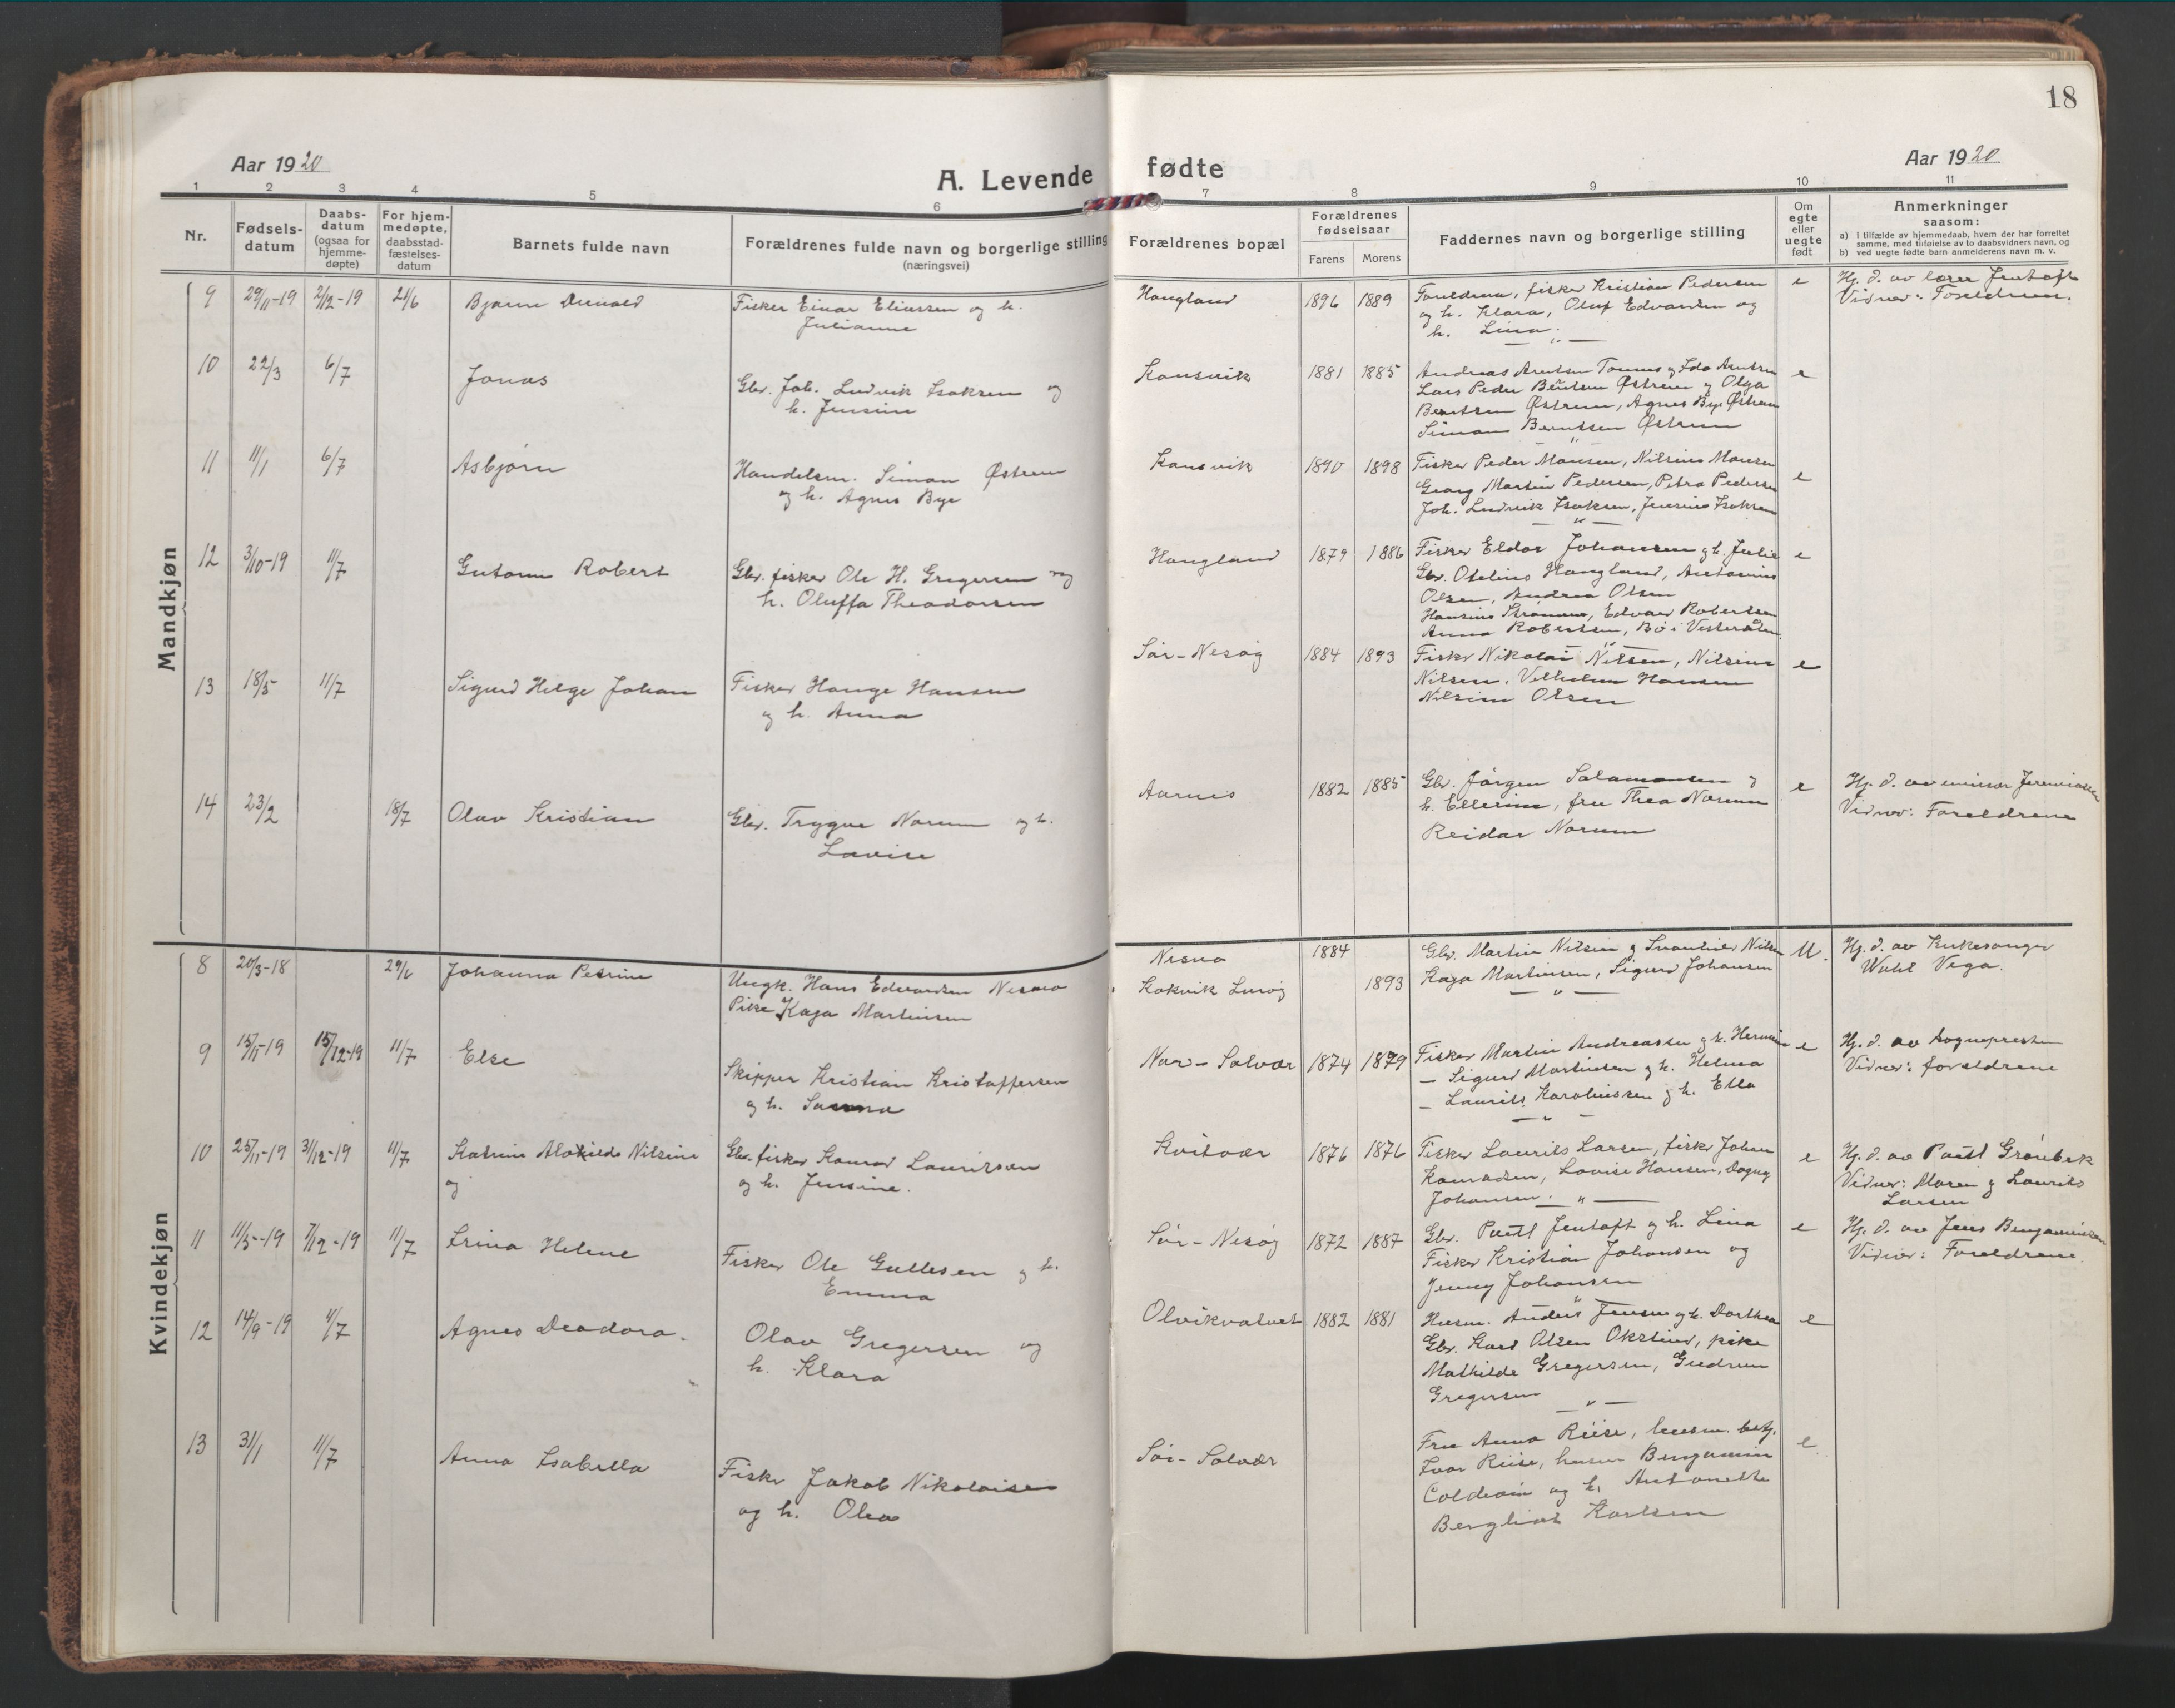 18
Aar 1920
A. Levende fødte
Aar 1920
1 2 3 4 5 6 7 8 9 10 11
Nr.
Fødsels-
datum
Daabs-
datum
(ogsaa for
hjemme-
døpte)
For hjem-
medøpte,
daabsstad-
fæstelses-
datum
Barnets fulde navn
Forældrenes fulde navn og borgerlige stilling
(næringsvei)
Forældrenes bopæl
Forældrenes
fødselsaar
Farens Morens
Faddernes navn og borgerlige stilling
Om
egte
eller
uegte
født
Anmerkninger
saasom:
a) i tilfælde av hjemmedaab, hvem der har forrettet
samme, med tilføielse av to daabsvidners navn, og
b) ved uegte fødte barn anmelderens navn m. v.
Mandkjøn
9 29/11-19 2/12-19 21/6 Bjarne
Fisker Einar Eliassen og h.
Julianne
Haugland 1896 1889
Foreldrene, fisker Kristian Pedersen
og h. Klara, Oluf Edvardsen og
h. Lina
e
Hj. d. av lærer Jentoft
Vidner: Foreldrene.
10 22/3 6/7 Jonas
Gbr. Joh. Ludvik Isaksen og
h. Jensine
Konsvik 1881 1885
Andreas Arntsen Tonnes og Ida Arntsen
Lars Peder Berntsen Østrem og Olga
Berntsen Østrem, Agnes Bye Østrem
Simon Berntsen Østrem
e
11 11/1 6/7 Asbjørn
Handelsm. Simon Østrem
og h. Agnes Bye
Konsvik 1890 1898
Fisker Peder Monsen, Nilsine Monsen
Georg Martin Pedersen, Petra Pedersen
Joh. Ludvik Isaksen, Jensine Isaksen
e
12 3/10-19 11/7 Gutorm Robert
Gbr. fisker Ole H. Gregersen og
h. Oluffa Theodorsen
Haugland 1879 1886
Fisker Eldor Johansen og h. Julie
Gbr. Otelius Haugland, Antonius
Olsen, Andrea Olsen
Hansine Strømmo, Edvard Robertsen
Anna Robertsen, Bø i Vesterålen
e
13 18/5 11/7 Sigurd Helge Johan
Fisker Hauge Hansen
og h. Anna
Sør-Nesøg 1884 1893
Fisker Nikolai Nilsen, Nilsine
Nilsen, Vilhelm Hansen
Nilsine Olsen
e
14 23/2 18/7 Olav Kristian
Gbr. Trygve Norum og h.
Lovise
Aarnes 1882 1885
Gbr. Jørgen Salamonsen og
h. Ellerine, fru Thea Norum
Reidar Norum
e
Hj. d. av emissær Jeremiassen
Vidner: Foreldrene
Kvindekjøn
8 20/3-18 29/6 Johanna Petrine
Ungk. Hans Edvardsen Nesna
Pike Kaja Martinsen
Nesna 1884
Kokvik Lurøy 1893
Gbr. Martin Nilsen og Nilsen
Kaja Martinsen, Sigurd Johansen
U.
Hj. d. av kirkesanger
Wahl Vega.
9 15/11-19 15/12-19 11/7 Else
Skipper Kristian Kristoffersen
og h. Sanna
Nor-Solvær 1874 1879
Fisker Martin Andreassen og h. Hermine
– Sigurd Martinsen og h. Helma
– Laurits Karoliussen og h. Ella
e
Hj. d. av sognepresten
Vidner: foreldrene
10 25/11-19 31/12-19 11/7 Katrine Alvhilde Nilsine
og
Gbr. fisker Konrad Lauritsen
og h. Jensine.
Kvitvær 1876 1876
Fisker Laurits Larsen, fisk. Johan
Konradsen, Lovise Hansen, Dagny
Johansen
e
Hj. d. av Poul Grønbek
Vidner: Maren og Laurits
Larsen
11 11/5-19 7/12-19 11/7 Irina Helene
Fisker Ole Gullesen og h.
Emma
Sør-Nesøy 1872 1887
Gbr. Poul Jentoft og h. Lina
Fisker Kristian Johansen og
Jenny Johansen
e
Hj. d. av Jens Benjaminsen
Vidner: Foreldrene.
12 14/9-19 4/7 Agnes Deodora.
Olav Gregersen og
h. Klara
Olvikvatnet 1882 1881
Husm. Anders Jensen og h. Dorthea
Gbr. Kard Olsen Okstind, pike
Mathilde Gregersen, Gudrun
Gregersen
e
13 31/1 11/7 Anna Isabella
Fisker Jakob Nikolaisen
og h. Olea
Sør-Solvær
Fru Anna Riise, lensm. betj.
Ivar Riise, husm Benjamin
Coldevin og h. Antonette
Bergliot Karlsen
e